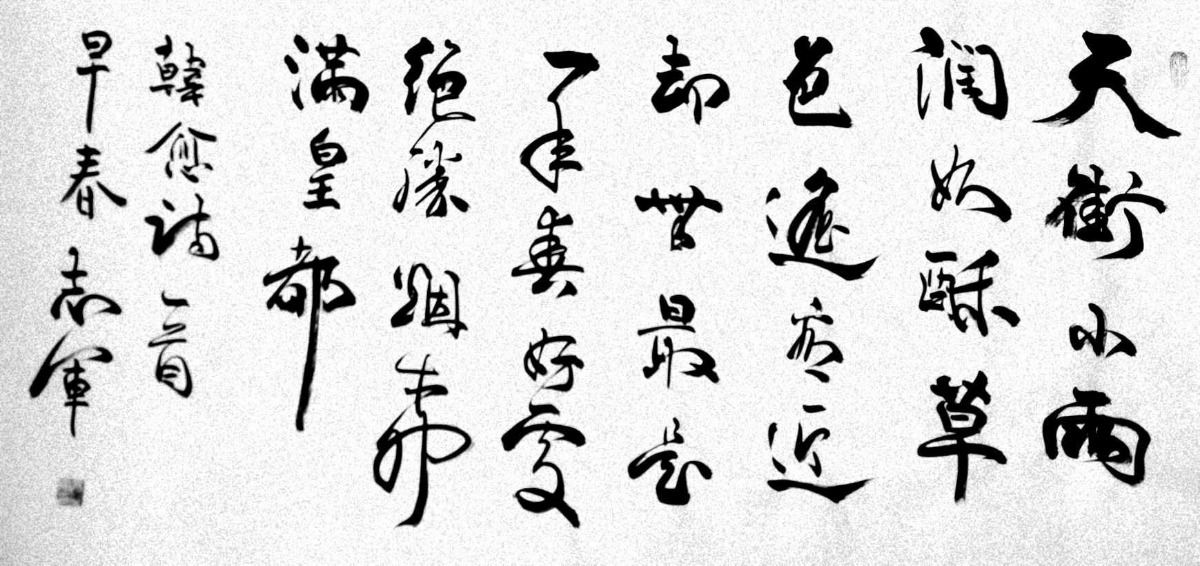 天街小雨
潤如酥草
色遙看近
却無最是
一年春好處
絕勝烟柳
滿皇都
韓愈詩一首
早春志軍